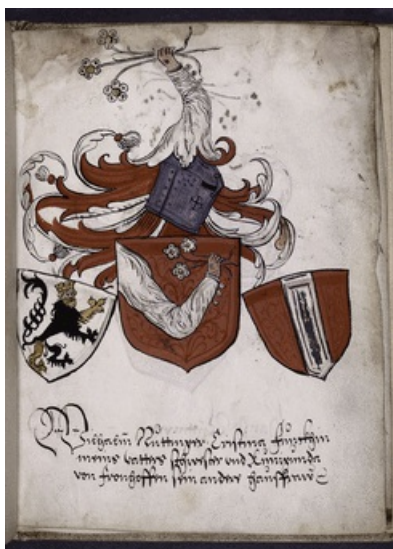 Wilhalm Nuttinger Cristina
meins vatters schwester und Kungunda
von fronhoffen sein ander haussfraw